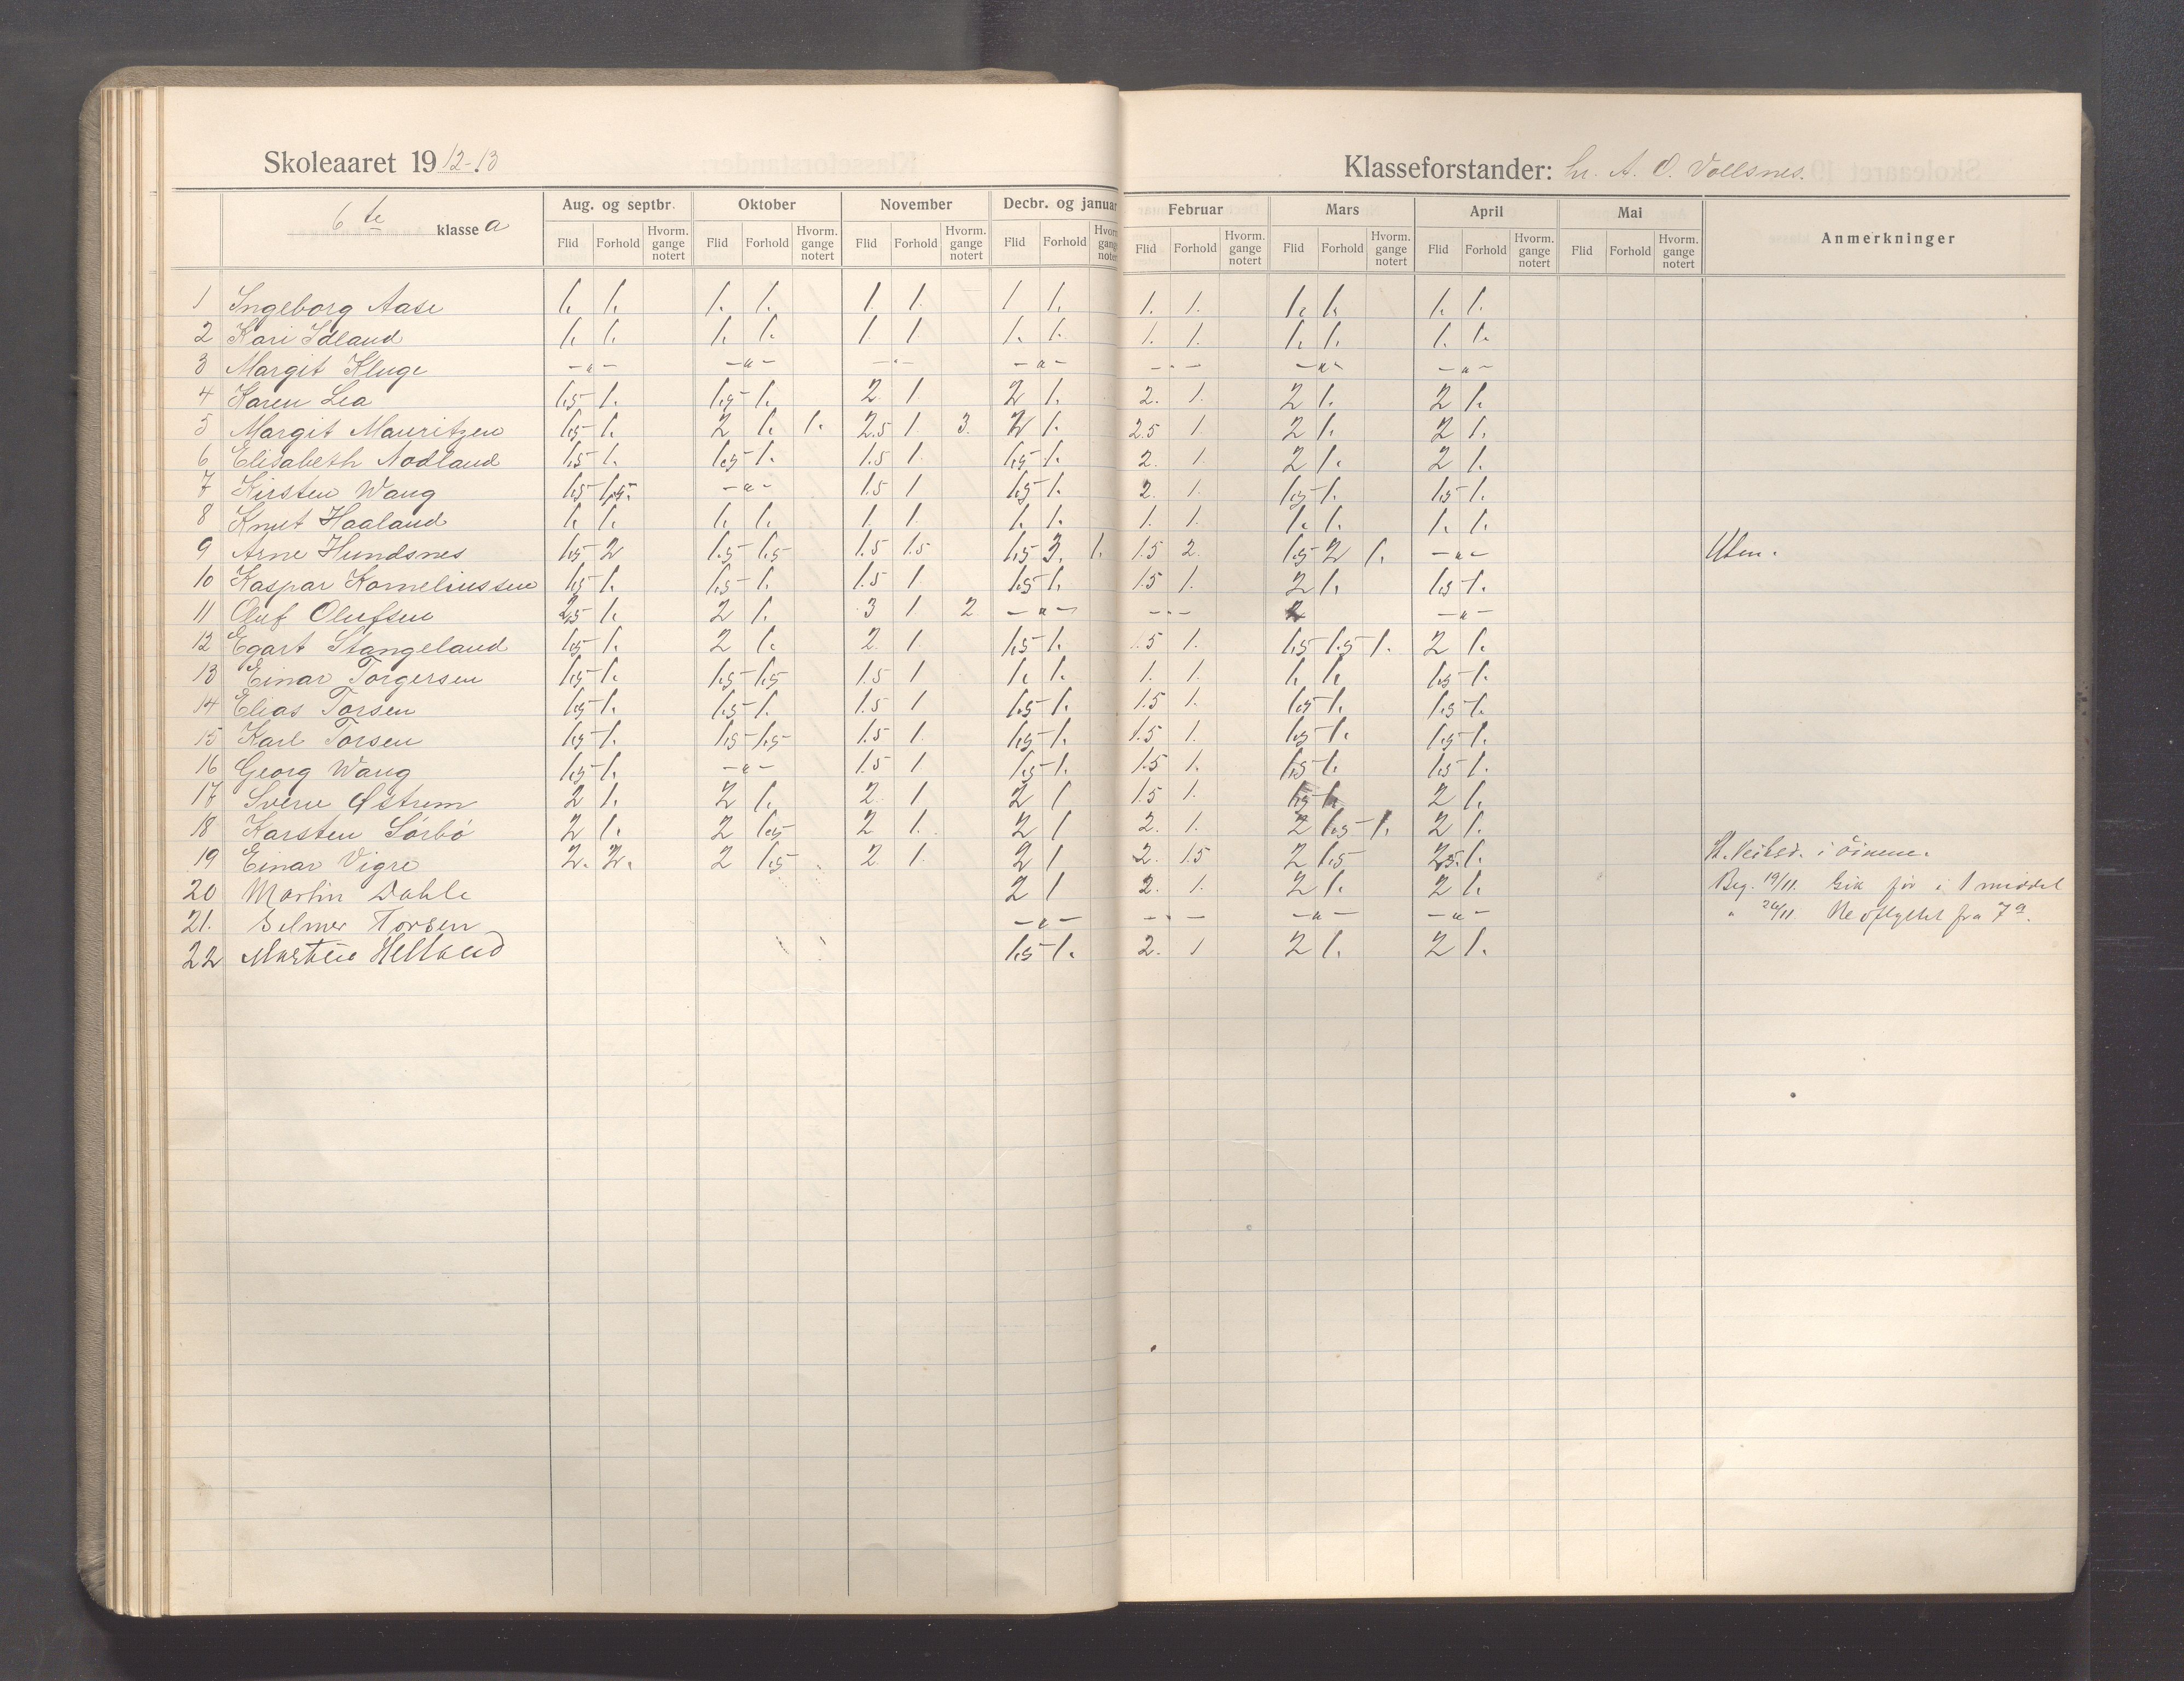 Skoleaaret 1912-13 Klasseforstander: hr. A. O. Vollsnes.
6te klasse a Aug. og septbr. Oktober November Decbr. og januar Februar Mars April Mai Anmerkninger
Flid Forhold Hvorm. gange notert Flid Forhold Hvorm. gange notert Flid Forhold Hvorm. gange notert Flid Forhold Flid Forhold Hvorm. gange notert Flid Forhold Hvorm. gange notert Flid Forhold Hvorm. gange notert Flid Forhold Hvorm. gange notert
1 Ingeborg Aase 1. 1. 1. 1. 1. 1. 1 1. 1. 1. 1. 1. 1. 1.
2 Kari Idland 1. 1. 1. 1. 1. 1 1. 1. 1. 1. 1. 1. 1. 1.
3 Margit Kluge -"- -"- -"- -"- -"- -"- -"-
4 Karen Lea 1.5 1. 1.5 1. 2. 1. 2 1. 2. 1. 2 1. 2 1.
5 Margit Mauritzen 1.5 1. 2 1. 1. 2.5 1 3. 2 1. 2.5 1 2 1. 2 1.
6 Elisabeth Nodland 1.5 1. 1.5 1. 1.5 1. 1.5 1. 2. 1. 2 1. 2 1.
7 Kirsten Wang 1.5 1.5. -"- 1.5 1 1.5 1. 2. 1. 1.5 1. 1.5 1.
8 Knut Haaland 1. 1. 1. 1. 1. 1. 1. 1. 1. 1. 1. 1. 1. 1.
9 Arne Hundsnes 1.5 2 1.5 1.5 1.5 1.5 1.5 3. 1. 1.5 2. 1.5 2 1. -"-
10 Kaspar Korneliussen 1.5 1. 1.5 1. 1.5 1 1.5 1. 1.5 1. 2 1. 1.5 1.
11 Oluf Olufsen 2.5 1. 2 1. 3 1 2 -"- -"- -"-
12 Egart Stangeland 1.5 1. 2 1. 2. 1. 1.5 1. 1.5 1. 1.5 1.5 1. 2 1.
13 Einar Torgersen 1.5 1. 1.5 1.5 1.5 1 1. 1. 1. 1. 1. 1. 1.5 1.
14 Elias Torsen 1.5 1. 1.5 1. 1.5 1 1.5 1. 1.5 1. 1.5 1. 1.5 1.
15 Karl Torsen 1.5 1. 1.5 1.5 1.5 1. 1.5 1. 1.5 1. 1.5 1. 1.5 1.
16 Georg Wang 1.5 1. -"- 1.5 1 1.5 1. 1.5 1. 1.5 1. 1.5 1.
17 Sverre Østrem 2 1. 2 1. 2. 1 2 1 1.5 1. 1.5 1. 2 1.
18 Karsten Sørbø 2 1. 2 1.5 2 1. 2 1 2. 1. 2 1.5 1. 2 1.
19 Einar Vigre 2. 2. 2 1.5 2 1. 2 1 2. 1.5 2 1.5 2.5. 1. i öinene.
20 Martin Dahle 2 1 2. 1. 2 1. 2 1. Beg. 19/11. Gik før i 1 middel
21. Selmer Torsen -"- -"- -"- -"- " 26/11. Nedflyttet fra 7a.
22 Martin Helland 1.5 1. 2. 1 2 1. 2 1.